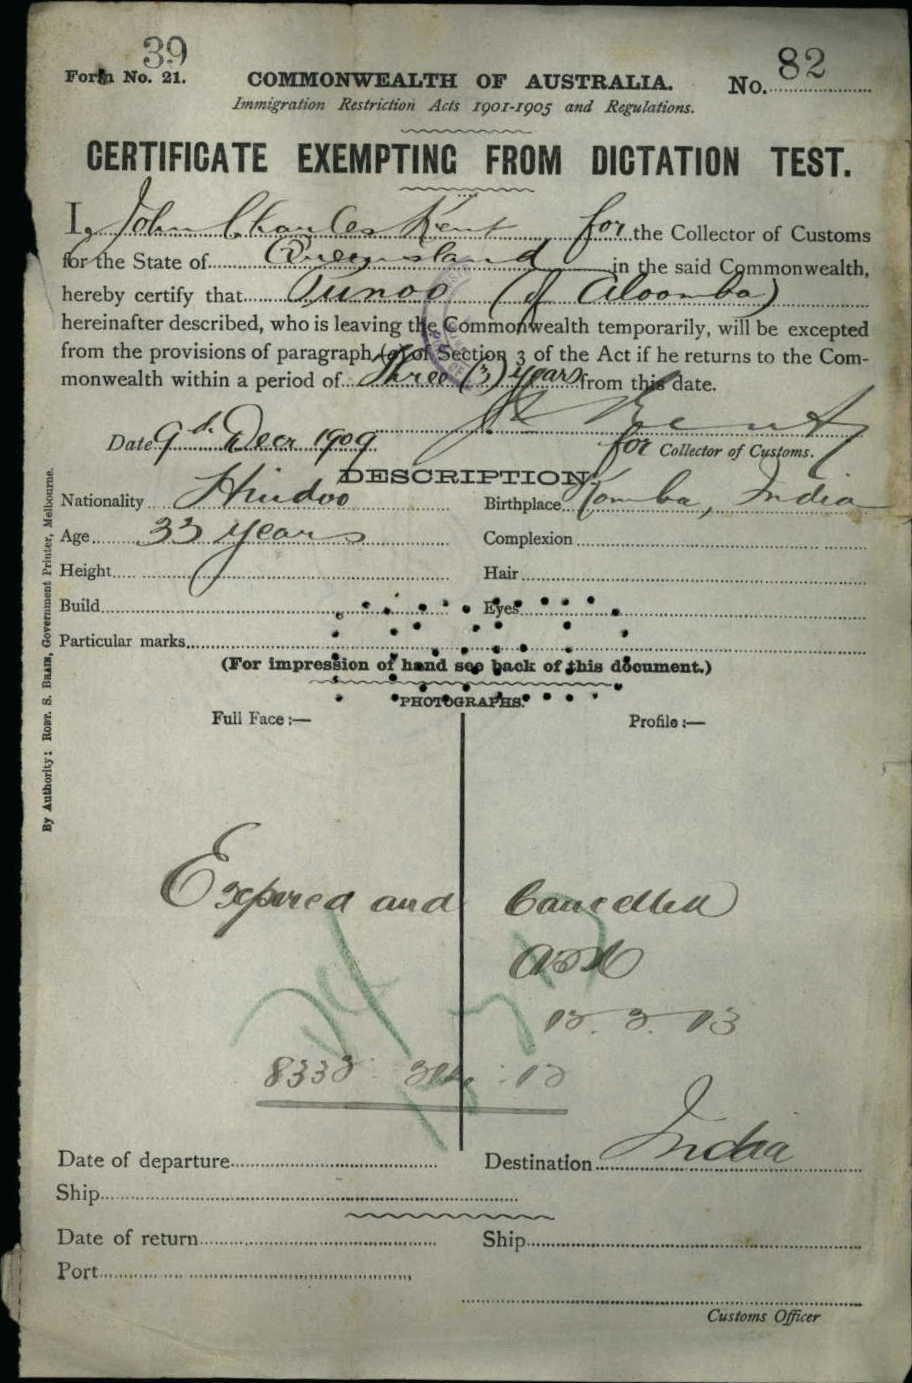 39
Form No. 21.
COMMONWEALTH OF AUSTRALIA.
No. 82
Immigration Restriction Acts 1901-1905 and Regulations.
CERTIFICATE EXEMPTING FROM DICTATION TEST.
I, John Charles Kent for the Collector of Customs
for the State of Queensland in the said Commonwealth,
hereby certify that Punoo (of Aloomba)
hereinafter described, who is leaving the Commonwealth temporarily, will be excepted
from the provisions of paragraph (a) of Section 3 of the Act if he returns to the Com-
monwealth within a period of three (3) years from this date.
J C Kent
Date 9th Decr 1909 for Collector of Customs.
DESCRIPTION.
Nationality Hindoo Birthplace Komba, India
Age 33 years Complexion
Height Hair
Build Eyes
Particular marks
(For impression of hand see back of this document.)
PHOTOGRAPHS.
Full Face :— Profile :—
By Authority: ROBT. S. BRAIN, Government Printer, Melbourne.
Expired and Cancelled
13
8333
Date of departure Destination India
Ship
Date of return Ship
Port
Customs Officer